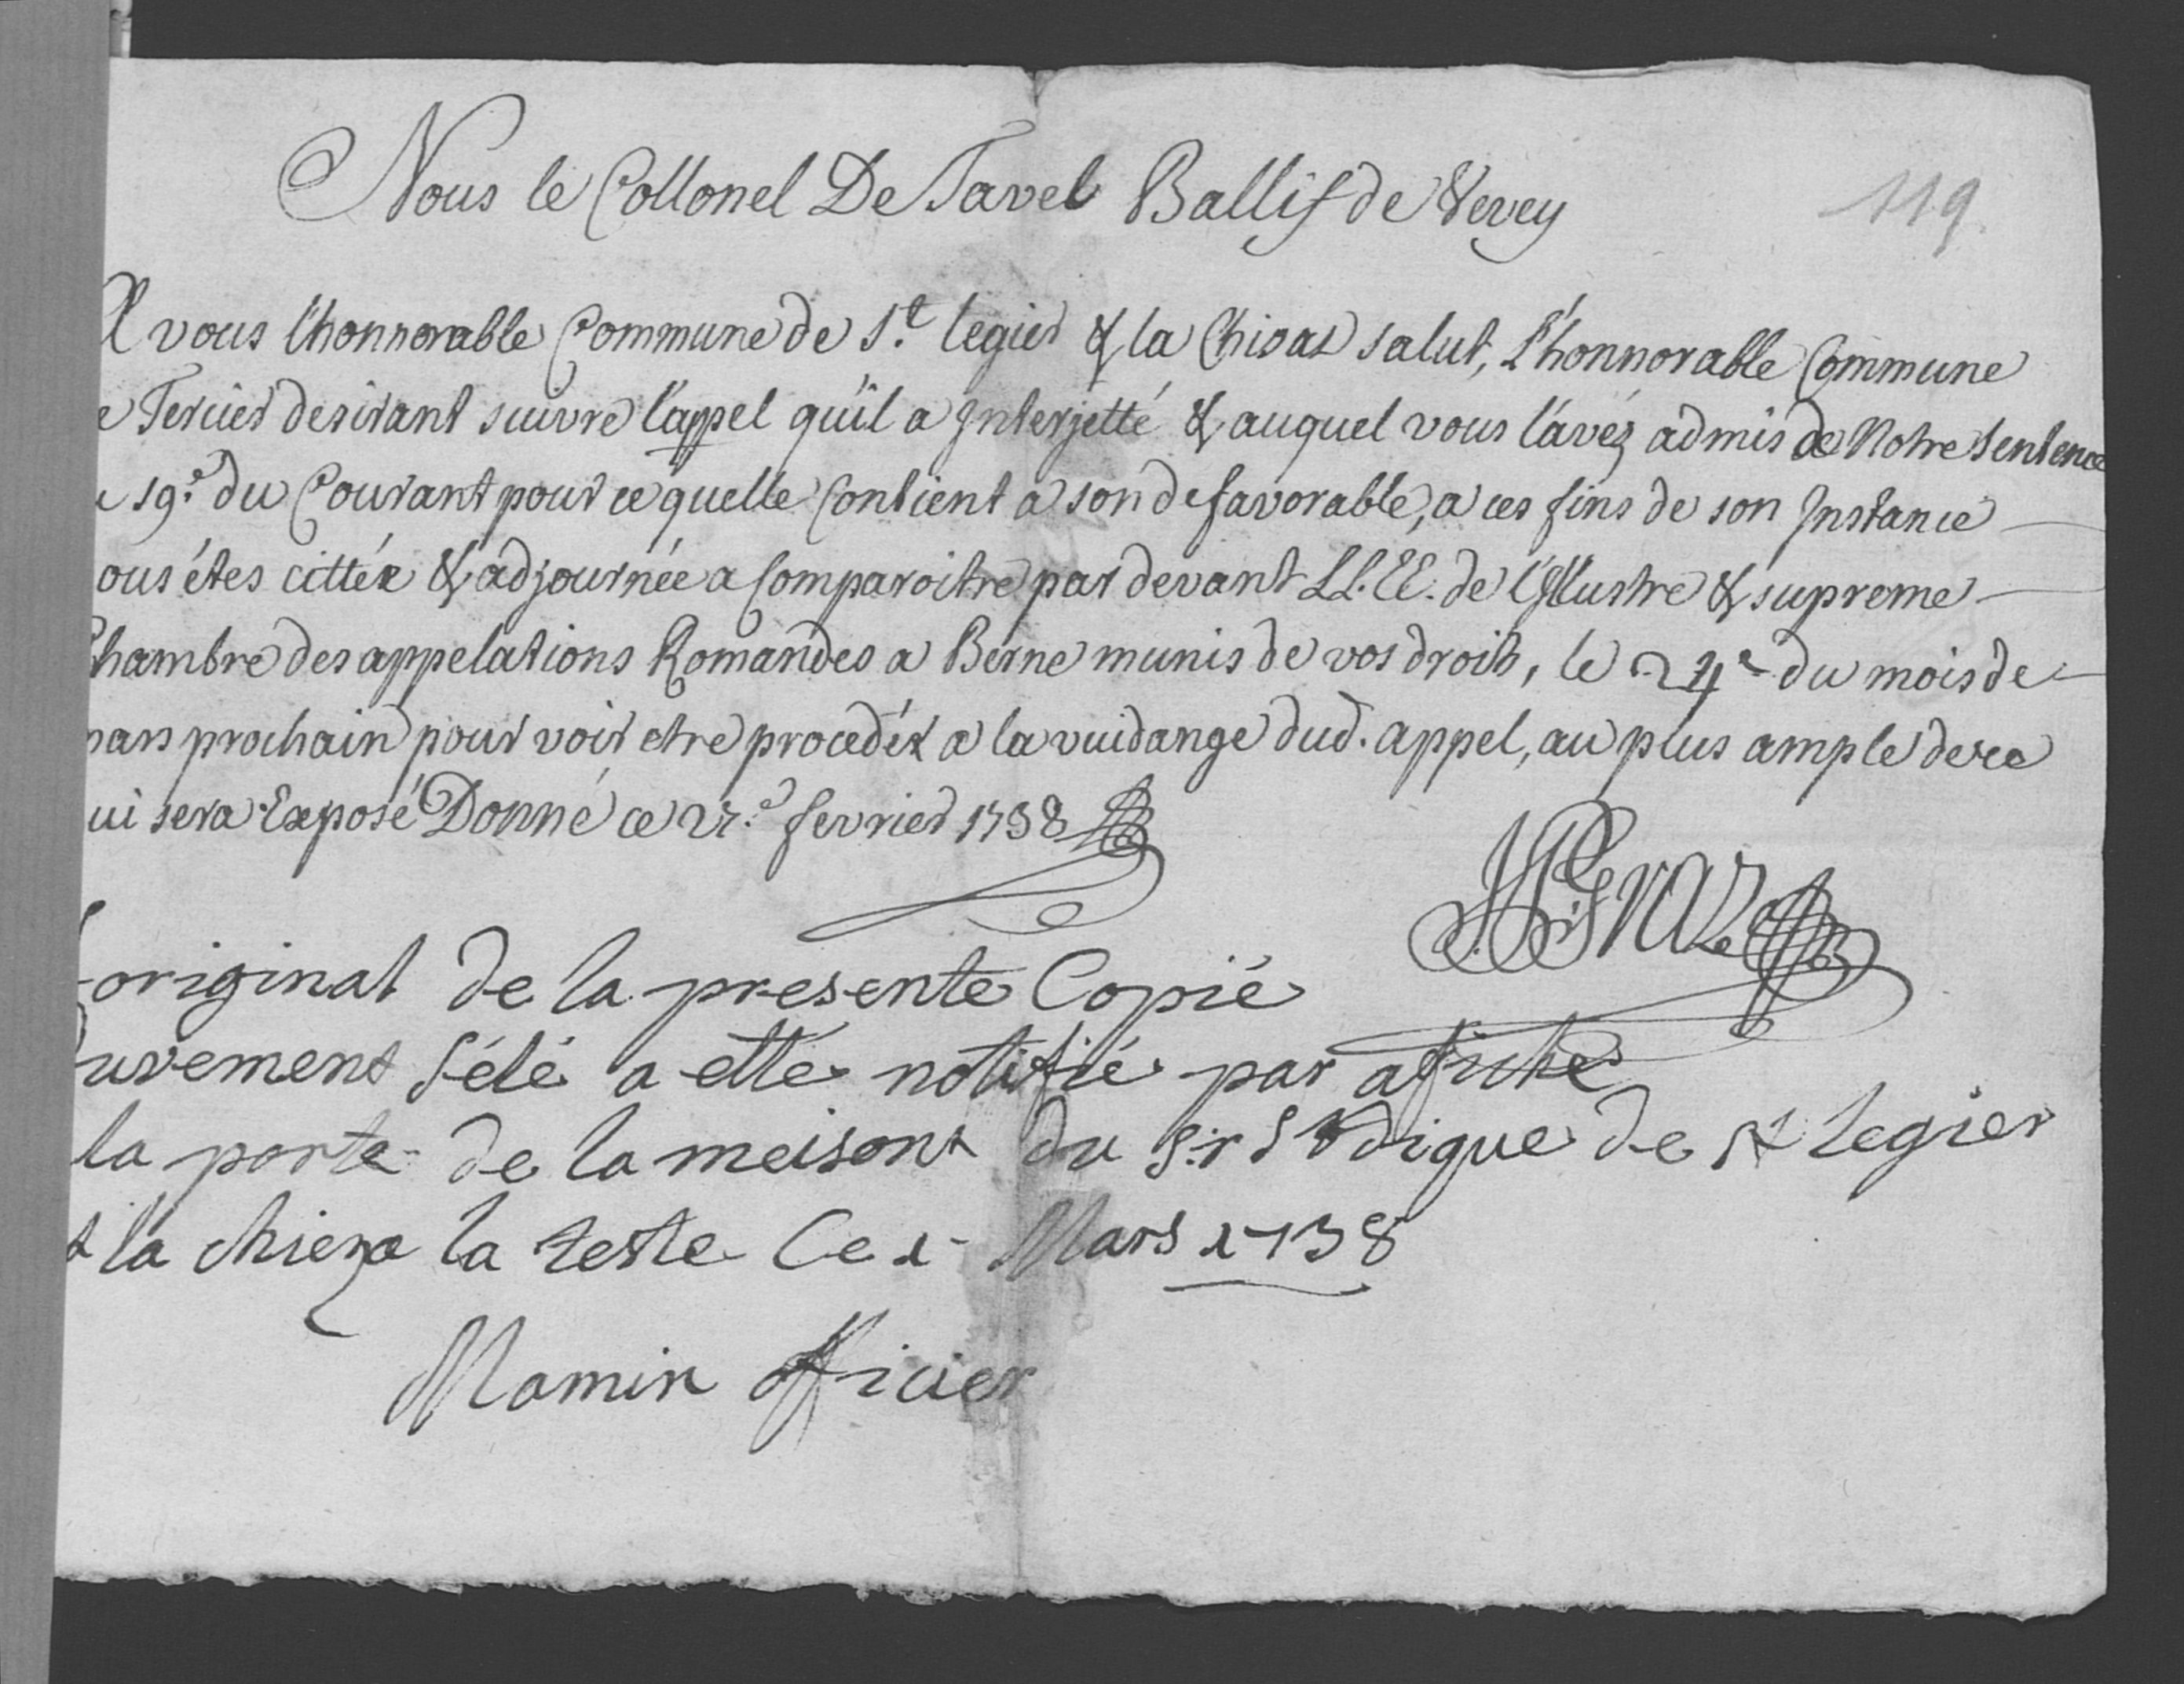 Nous le Collonel De Tavel Ballif de Vevey
119
A vous l'honnorable Commune de St. legier & la Chisaz salut, L'honnorable Commune
e Tercier desirant suivre l'appel qu'il a Interjetté & auquel vous l'avéz admis de Notre Sentence
19e. du Courant pour ce quelle Contient a son defavorable, a ces fins de son Instance
ous étes cittée & adjournée a Comparoitre par devant LL.EE. de l'Illustre & supreme
Chambre des appelations Romandes a Berne munis de vos droits, le 24e du mois de
mars prochain pour voir etre procedér a la vuidange dud. appel, au plus ample de ce
ui sera Exposé Donné ce 27.e fevrier 1738
L'original de la presente Copié
uvement sélé a etté notifié par afiche
la porte de la meisont du S:r Sindique de St Legier
t la chieza la teste Ce 1 Mars 1738
Mamin officier